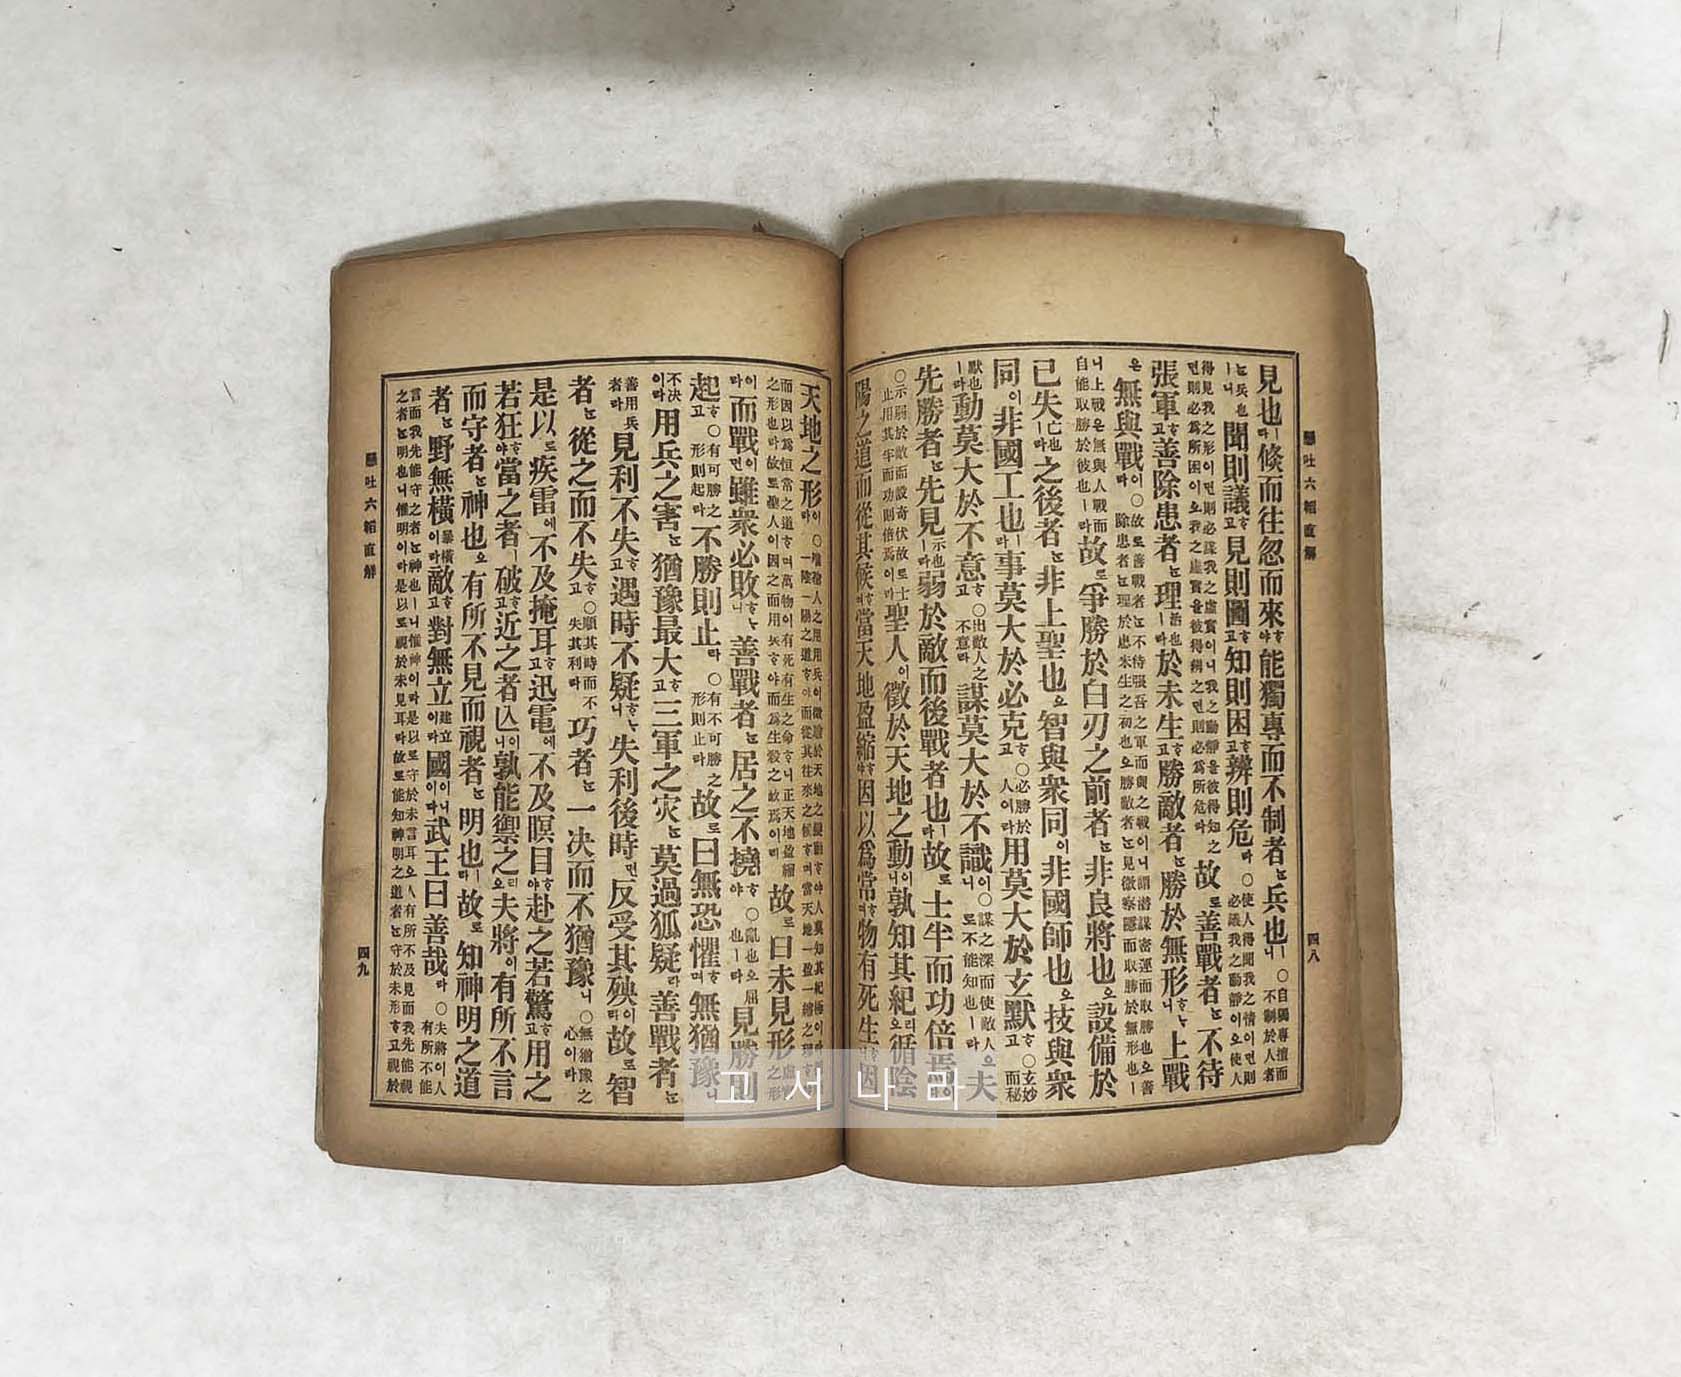 懸吐六韜直解 四八
見也ㅣ라 倏而往忽而來ᄒᆞ야 能獨專而不制者ᄂᆞᆫ 兵也ㅣ니 ○自獨專擅而不制於人者
ᄂᆞᆫ兵也ㅣ니 聞則議ᄒᆞ고見則圖ᄒᆞ고知則困ᄒᆞ고辨則危라 ○使人得聞我之情이면則必議我之動靜이오使人
得見我之形이면則必謀我之虛實이니我之動靜을彼得知之면則必爲所困이오我之虛實을彼得辨之면則必爲所危라 故로 善戰者ᄂᆞᆫ 不待
張軍ᄒᆞ고善除患者ᄂᆞᆫ 理治也ㅣ라於未生ᄒᆞ고勝敵者ᄂᆞᆫ 勝於無形ᄒᆞᄂᆞ니 上戰
은 無與戰이라 ○故로善戰者ᄂᆞᆫ不待張吾之軍而與之戰이니謂潛謀密運而取勝也오善除患者ᄂᆞᆫ理於患未生之初也오勝敵者ᄂᆞᆫ見微察隱而取勝於無形也ㅣ
니上戰은無與人戰而自能取勝於彼也ㅣ라 故로 爭勝於白刃之前者ᄂᆞᆫ 非良將也오 設備於
已失亡也ㅣ라之後者ᄂᆞᆫ 非上聖也오 智與衆同이 非國師也오 技與衆
同이 非國工也ㅣ라 事莫大於必克ᄒᆞ고 ○必勝於人이라 用莫大於玄默ᄒᆞ고 ○玄妙而秘
默也ㅣ라 動莫大於不意ᄒᆞ고 ○出敵人之不意라 謀莫大於不識이니 ○謀之深而使敵人으로不能知也ㅣ라 夫
先勝者ᄂᆞᆫ 先見示也ㅣ라弱於敵而後戰者也ㅣ라 故로 士半而功倍焉
○示弱於敵而設奇伏故로士止用其半而功則倍焉이라 聖人이 徵於天地之動이니 孰知其紀리오 循陰
陽之道而從其候ᄒᆞ며 當天地盈縮ᄒᆞ야 因以爲常ᄒᆞ며 物有死生 因
天地之形이라 ○ 一陰一陽之道
而因以爲恒常之道ᄒᆞ며萬物이有死有生之命ᄒᆞ니正天地盈縮之形也라故로聖人이因之而用兵ᄒᆞ야而爲生殺之故焉이라 故로 曰未見形
이라而戰이면 雖衆必敗ᄒᆞᄂᆞ니 善戰者ᄂᆞᆫ 居之不撓ᄒᆞ야 ○亂也오屈也ㅣ라 見勝則
起ᄒᆞ고 ○有可勝之形則起라 不勝則止라 ○有不可勝之形則止라 故로 曰無恐懼ᄒᆞ며 無猶豫ᄒᆞ니
不決이라 用兵之害ᄂᆞᆫ 猶豫最大ᄒᆞ고 三軍之灾ᄂᆞᆫ 莫過狐疑라 善戰者ᄂᆞᆫ
善用兵者라 見利不失ᄒᆞ고 遇時不疑ᄒᆞᄂᆞ니 失利後時면 反受其殃이라 故로 智
者ᄂᆞᆫ 從之而不失ᄒᆞ고 ○順其時而不失其利라 巧者ᄂᆞᆫ 一决而不猶豫니 ○無猶豫之心이라
是以로 疾雷에 不及掩耳ᄒᆞ고 迅電에 不及瞑目ᄒᆞ야 赴之若驚ᄒᆞ고 用之
若狂ᄒᆞ야 當之者ㅣ 破ᄒᆞ고 近之者亡이니 孰能禦之리오 夫將이 有所不言
而守者ᄂᆞᆫ 神也오 有所不見而視者ᄂᆞᆫ 明也ㅣ라 故로 知神明之道
者ᄂᆞᆫ 野無橫暴橫이라敵ᄒᆞ고 對無立建立이라國이니이다 武王曰善哉라 ○夫將이人有所不能
言而我先能守之者ᄂᆞᆫ神也ㅣ니惟神이라是以로守於未言耳오人有所不及見而我先能視之者ᄂᆞᆫ明也ㅣ니惟明이라是以로視於未見耳라故로能知神明之道者ᄂᆞᆫ守於未形ᄒᆞ고視於
懸吐六韜直解 四九
고서나라